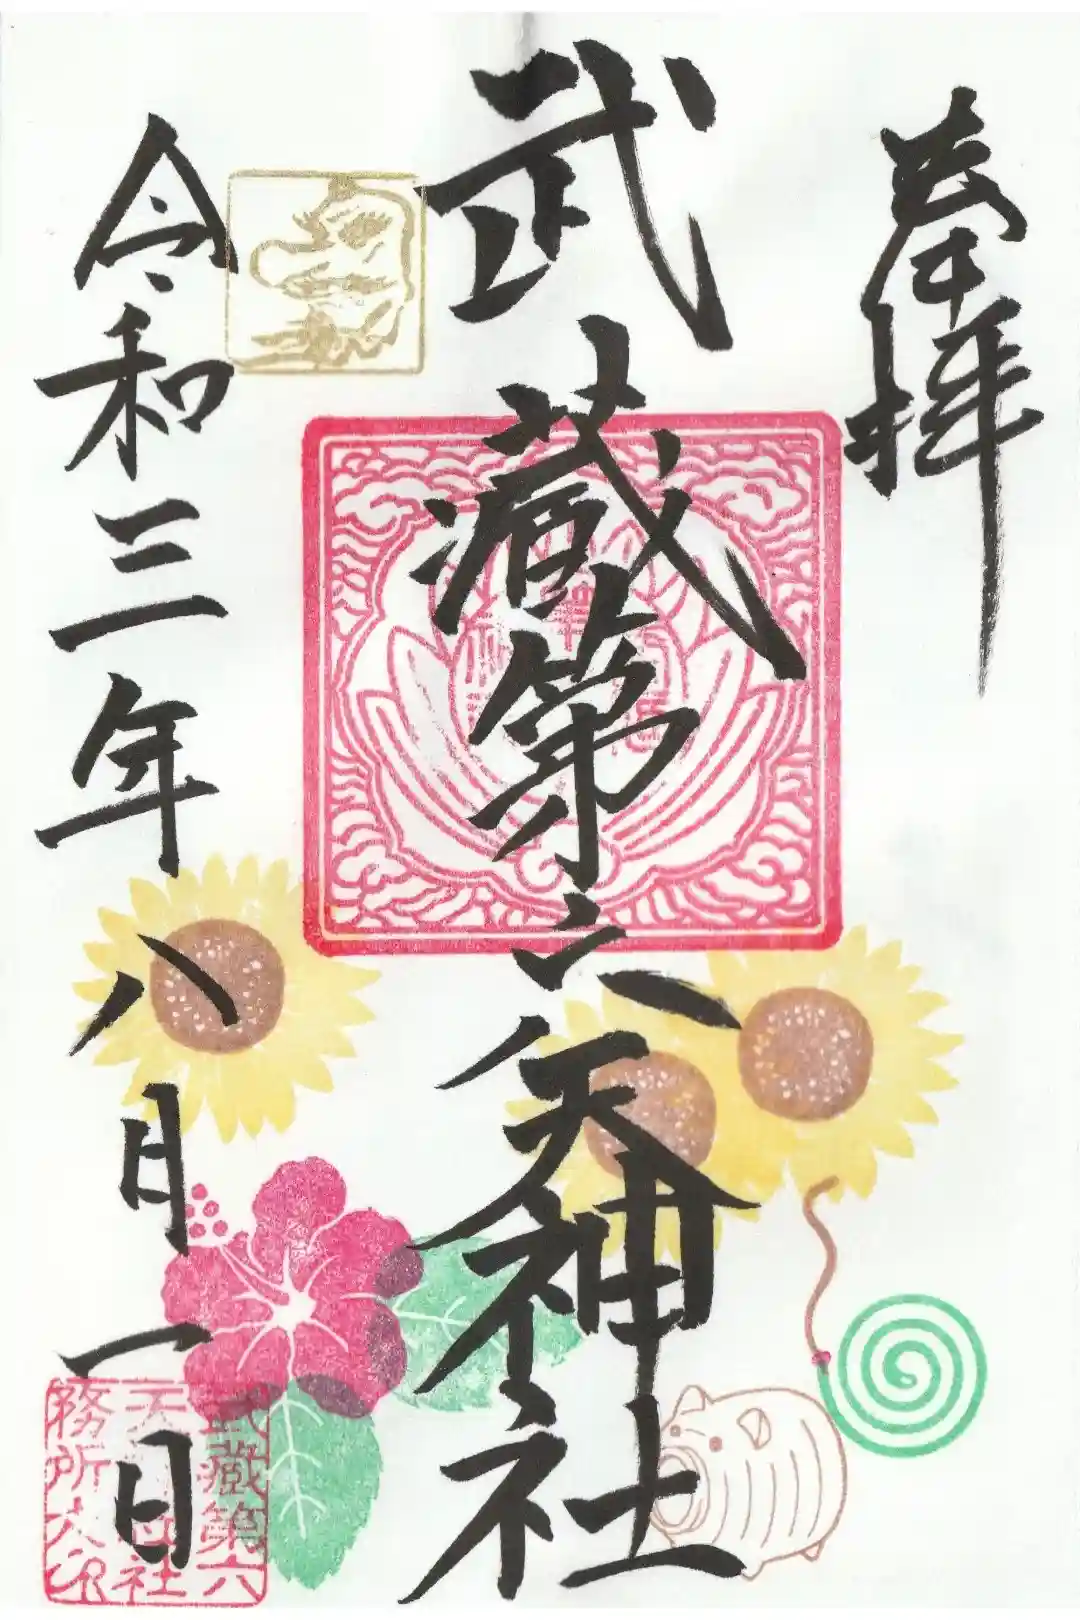 奉拝
武蔵第六天神社
令和三年八月一日
武蔵第六
天神社
務所之印